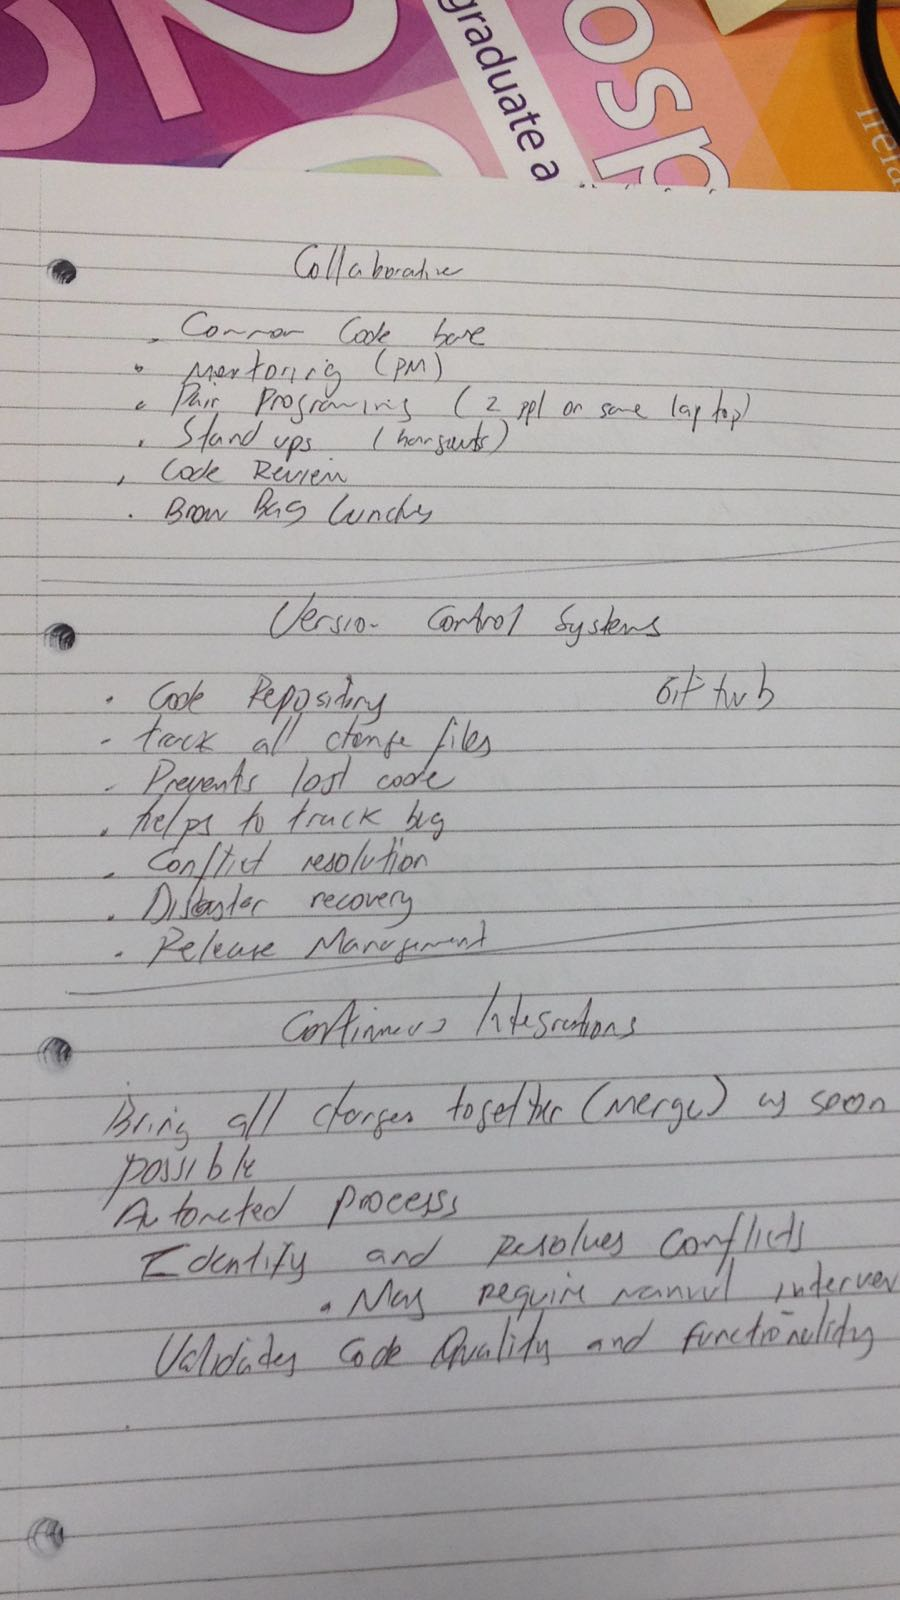 graduate a
osp
Irela
Collaborative
. Common Code base
. Mentoring (PM)
. Pair Programing (2 ppl on same laptop)
. Stand ups (hangouts)
. Code Review
. Brown Bag lunches
Version Control Systems
. Code Repository Git hub
- track all change files
- Prevents lost code
. helps to track bug
. Conflict resolution
. Disaster recovery
. Release Management
Continuous Integrations
Bring all changes together (merge) as soon
possible
Automated process
Identify and resolves conflicts
. May require manual interven
Validates Code Quality and functionality